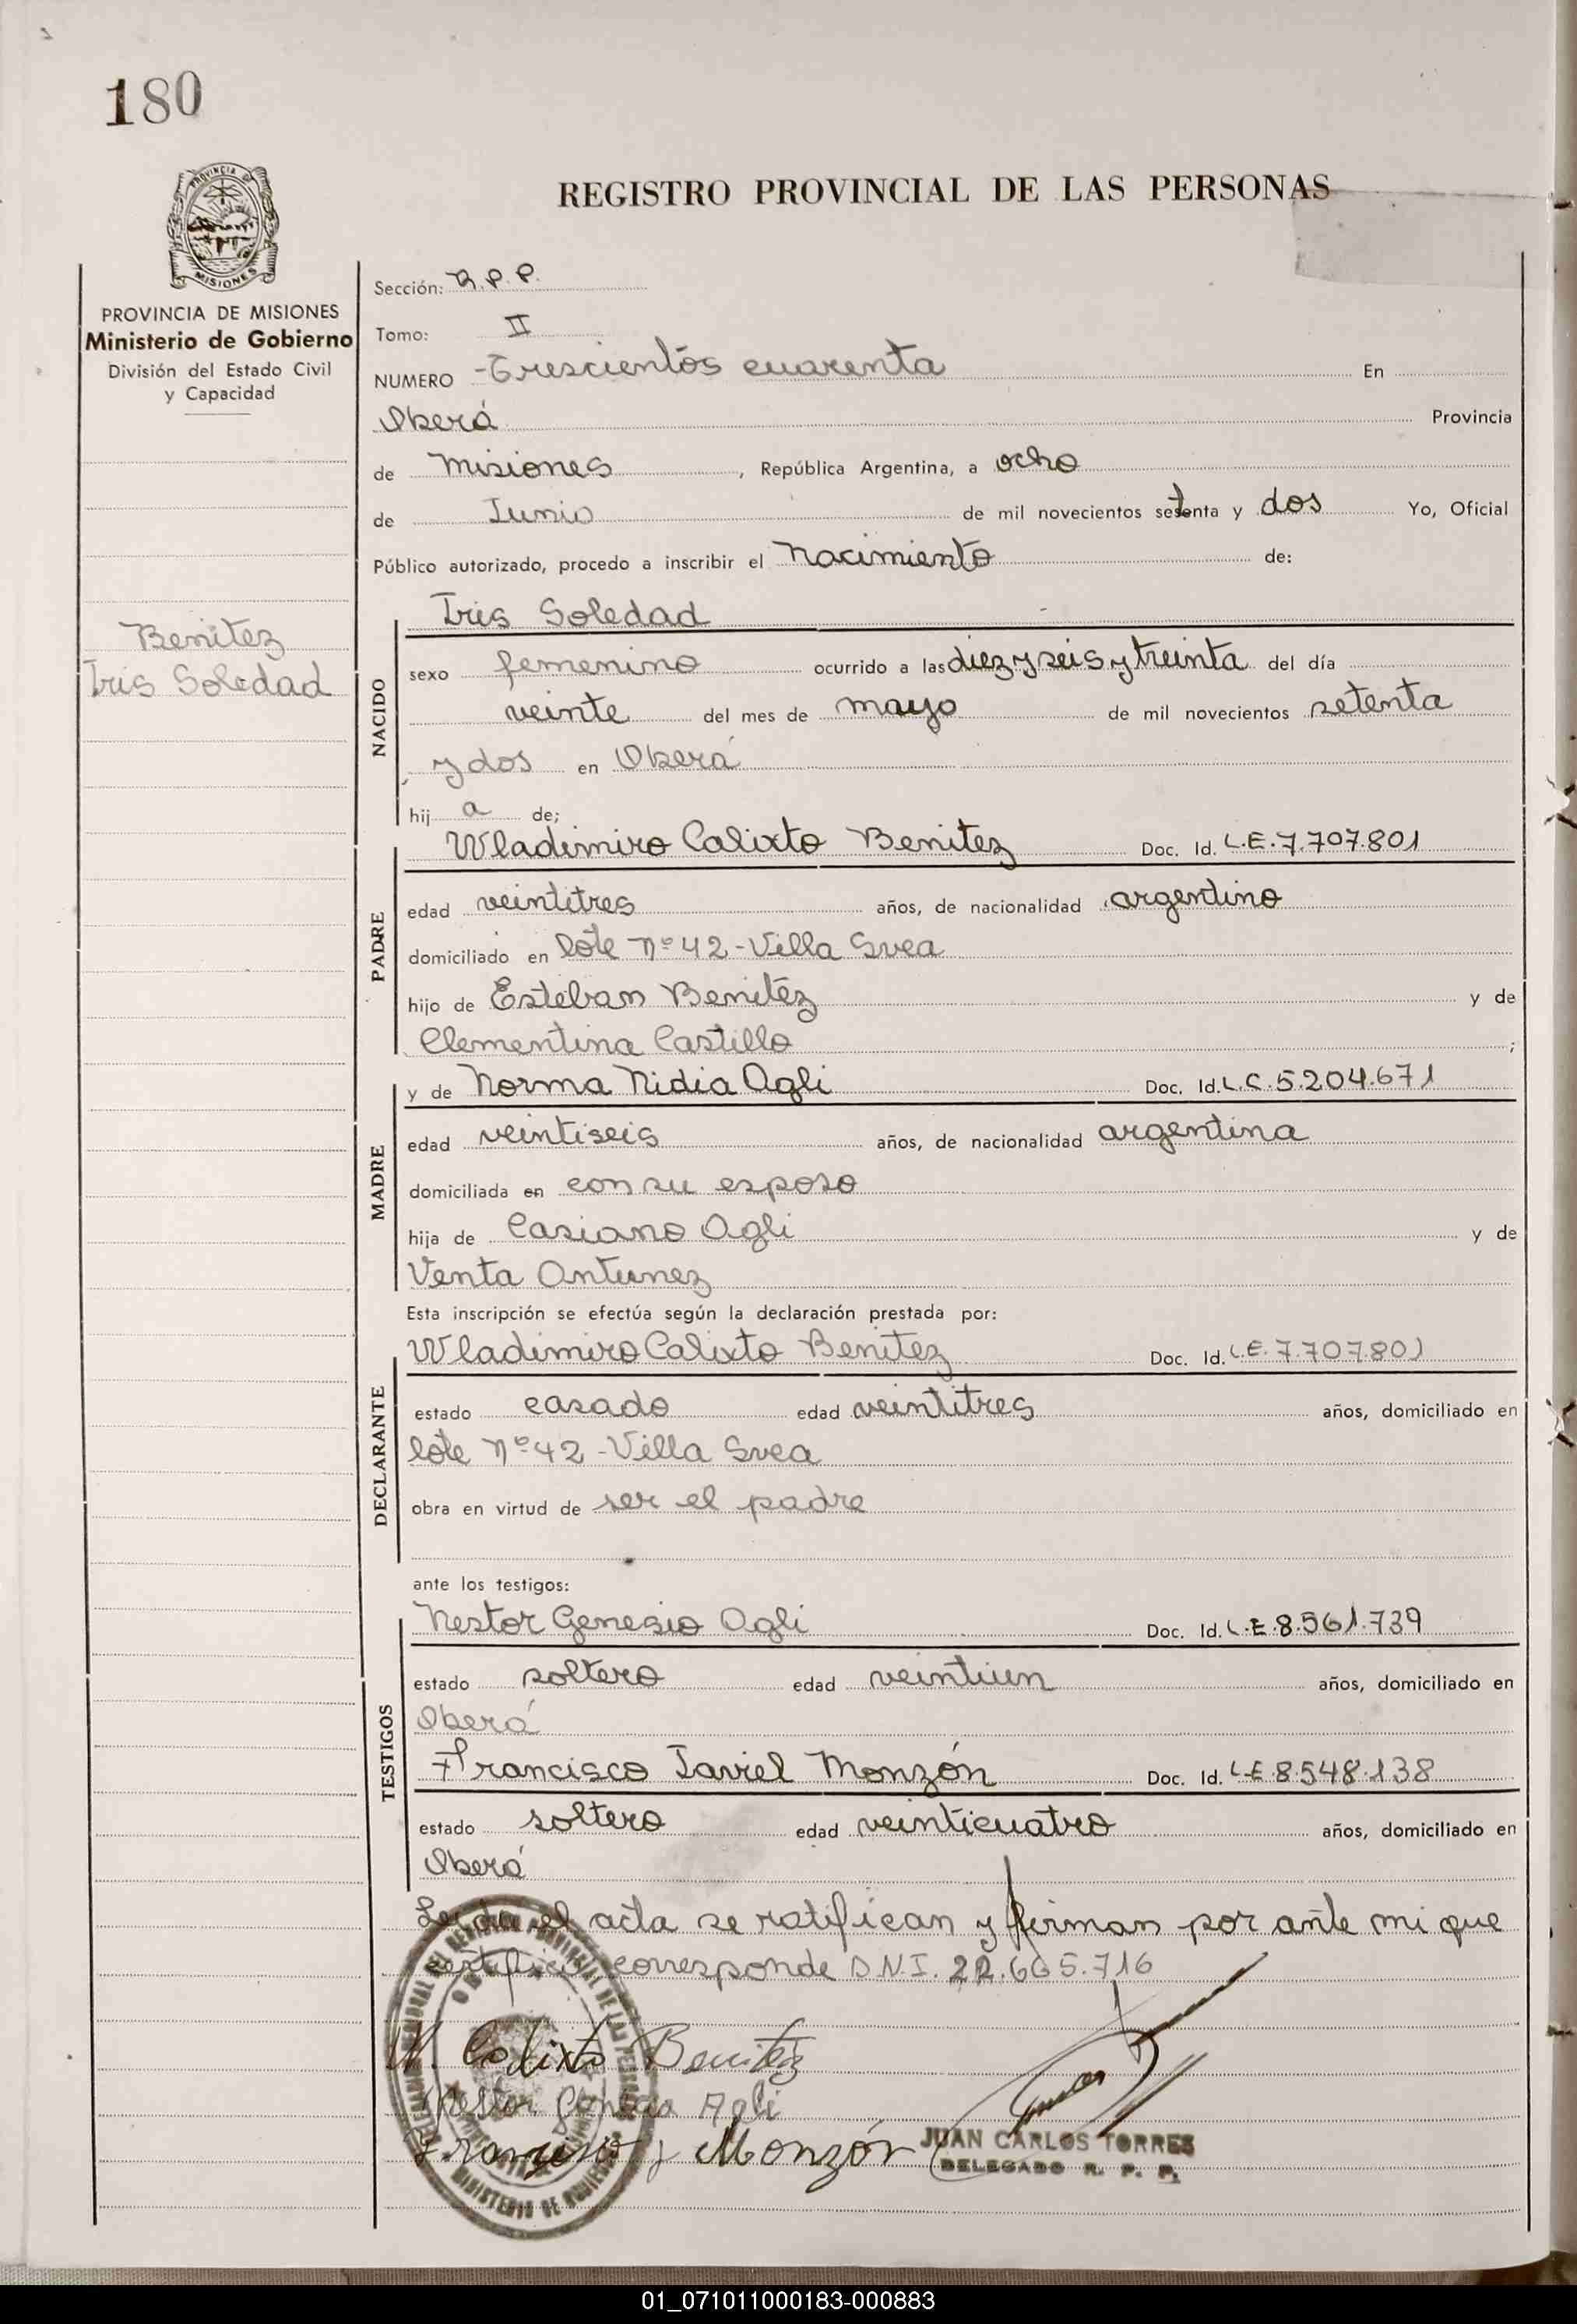 180
PROVINCIA DE
MISIONES
REGISTRO PROVINCIAL DE LAS PERSONAS
PROVINCIA DE MISIONES
Ministerio de Gobierno
División del Estado Civil
y Capacidad
Benitez
Iris Soledad
Sección: R.P.P.
Tomo: II
NUMERO -Trescientos cuarenta En
Oberá Provincia
de Misiones, República Argentina, a ocho
de Junio de mil novecientos setenta y dos Yo, Oficial
Público autorizado, procedo a inscribir el Nacimiento de:
NACIDO
Iris Soledad
sexo femenino ocurrido a las diez y seis y treinta del día
veinte del mes de mayo de mil novecientos setenta
y dos en Oberá
hij a de;
PADRE
Wladimiro Calixto Benitez Doc. Id. L.E.7.707.801
edad veintitres años, de nacionalidad argentino
domiciliado en lote Nº 42 - Villa Svea
hijo de Esteban Benitez y de
Clementina Castillo ;
MADRE
y de Norma Nidia Agli Doc. Id. L.C.5.204.671
edad veintiseis años, de nacionalidad argentina
domiciliada en con su esposo
hija de Casiano Agli y de
Venta Antunez
Esta inscripción se efectúa según la declaración prestada por:
DECLARANTE
Wladimiro Calixto Benitez Doc. Id. L.E. 7.707.801
estado casado edad veintitres años, domiciliado en
lote Nº 42 - Villa Svea
obra en virtud de ser el padre
ante los testigos:
TESTIGOS
Nestor Genesio Agli Doc. Id. L.E.8.561.739
estado soltero edad veintiun años, domiciliado en
Oberá
Francisco Javiel Monzón Doc. Id. L.E 8.548.138
estado soltero edad veinticuatro años, domiciliado en
Oberá
Leida el acta se ratifican y firman por ante mi que
certifico corresponde D.N.I. 22.665.716
W. Calixto Benitez
Nestor Genesio Agli
Francisco J Monzón
JUAN CARLOS TORRES
DELEGADO R. P. P.
01_071011000183-000883